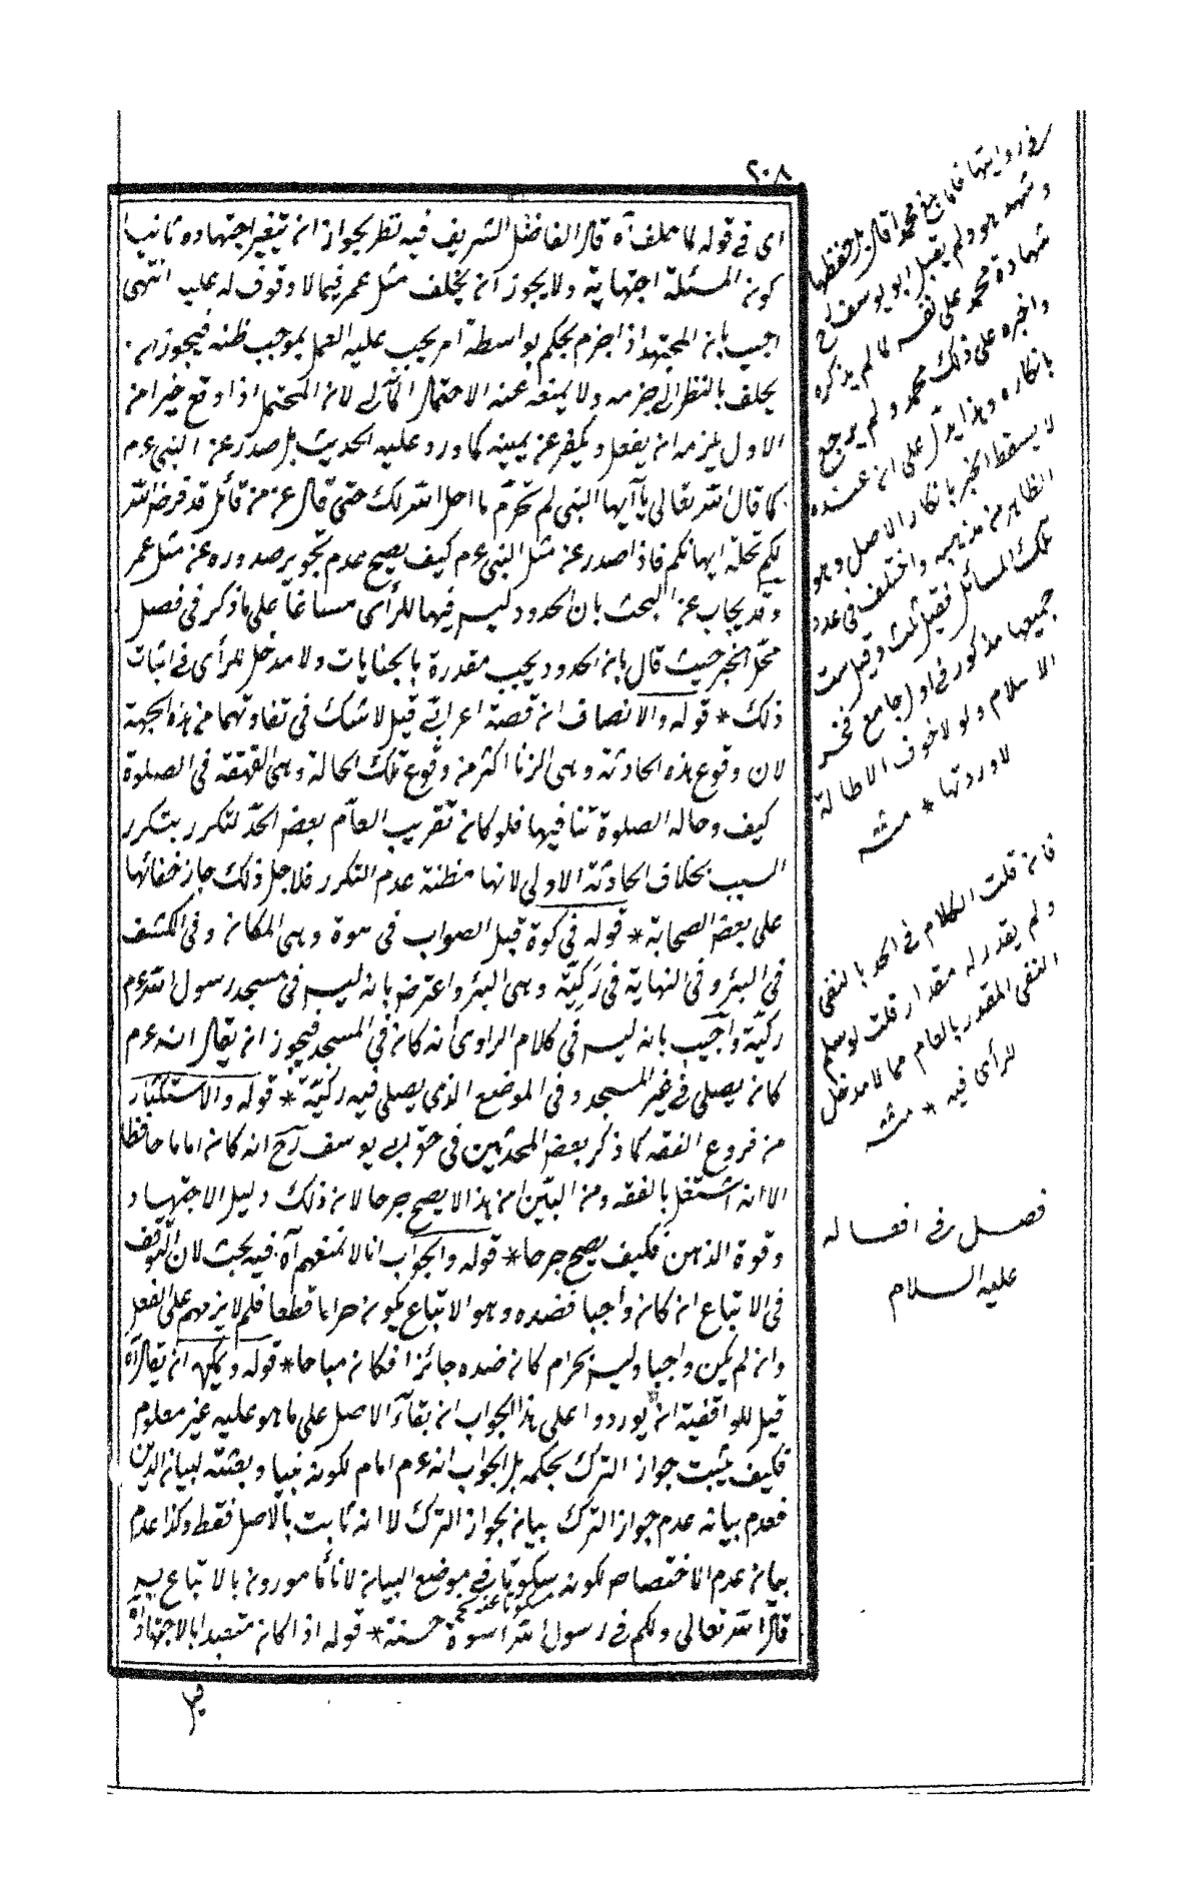 ٢٠٨
اى فى قوله لما حلف آه قال الفاضل الشريف فيه نظر لجواز ان يتغير اجتهاده ثانيا
كون المسئلة اجتهادية ولا يجوز ان يحلف مثل عمر فيما لا وقوف له عليه انتهى
اجيب بان المجتهد اذا جزم بحكم بواسطة امر يجب عليه العمل بموجب ظنه فيجوز ان
يحلف بالنظر الى جزمه ولا يمنعه عنه الاحتمال المآلى لان المحتمل اذا وقع خيرا من
الاول يلزمه ان يفعل ويكفر عن يمينه كما ورد عليه الحديث بل صدر عن النبى عم
كما قال الله تعالى يا آيها النبى لم تحرم ما احل الله لك حتى قال عز من قائل قد فرض الله
لكم تحلة ايمانكم فاذا صدر عن مثل النبى عم كيف يصح عدم تجويز صدوره عن مثل عمر
وقد يجاب عن البحث بان الحدود ليس فيها للرأى مساغا على ما ذكر فى فصل
محل الخبر حيث قال بان الحدود يجب مقدرة بالجنايات ولا مدخل للرأى فى اثبات
ذلك * قوله والانصاف ان قصة اعرابى قيل لا شك فى تفاوتهما من هذه الجهة
لان وقوع هذه الحادثة وهى الزنا اكثر من وقوع تلك الحالة وهى القهقهة فى الصلوة
كيف وحاله الصلوة تنافيها فلو كان تقريب العام بعض الحد لتكرر بتكرر
السبب بخلاف الحادثة الاولى لانها مظنة عدم التكرر فلاجل ذلك جاز خفائها
على بعض الصحابة * قوله فى كوة قيل الصواب فى هوة وهى المكان وفى الكشف
فى البئر وفى النهاية فى ركية وهى البئر واعترض بانه ليس فى مسجد رسول الله عم
ركية واجيب بانه ليس فى كلام الراوى انه كان فى المسجد فيجوز ان يقال انه عم
كان يصلى فى غير المسجد وفى الموضع الذى يصلى فيه ركية * قوله والاستكثار
من فروع الفقه كما ذكر بعض المحدثين فى حق ابى يوسف رح انه كان اماما حافظا
الا انه اشتغل بالفقه ومن البين ان هذا لا يصح جرحا لان ذلك دليل الاجتهاد
وقوة الذهن فكيف يصح جرحا * قوله والجواب انا لا نمنعهم آه فيه بحث لان التوقف
فى الاتباع ان كان واجبا فضده وهو الاتباع يكون حراما قطعا فلم لا يلزمهم على الفعل
وان لم يكن واجبا وليس بحرام كان ضده جائزا فكان مباحا * قوله ويمكن ان يقال آه
قيل للواقفية ان يوردوا على هذا الجواب ان بقاء الاصل على ما هو عليه غير معلوم
فكيف يثبت جواز الترك بحكمه بل الجواب انه عم امام لكونه نبيا وبعثته لبيان الدين
فعدم بيانه عدم جواز الترك بيان لجواز الترك لا انه ثابت بالاصل فقط وكذا عدم
بيان عدم الاختصاص لكونه سكوتا فى موضع البيان لانا مامورون بالاتباع به
قال الله تعالى ولكم فى رسول الله اسوة حسنة * قوله اذا كان متعبدا بالاجتهاد آه
وشهد هو ولم يقبل ابو يوسف رح
شهادة محمد على نفسه لما لم يذكره
واخبره على ذلك محمد ولم يرجع
بانكاره وهذا يدل على ان عنده
لا يسقط الخبر بانكار الاصل وهو
الظاهر من مذهبه واختلف فى عدد
تلك المسائل فقيل ثلث وقيل ست
جميعها مذكور فى اول جامع فخر
الاسلام ولولا خوف الاطالة
لاوردتها * منه
فان قلت الكلام فى الحد بالنفى
ولم يقدر له مقدار قلت لو سلم
النفى المقدر بالعام مما لا مدخل
للرأى فيه * منه
فصل فى افعاله
عليه السلام